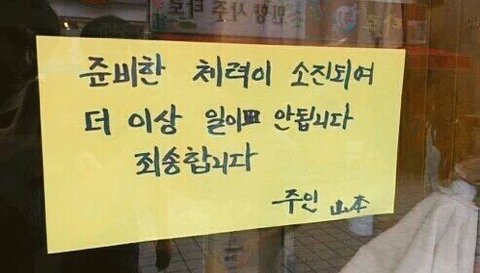 준비한 체력이 소진되어
더 이상 일이 안됩니다
죄송합니다
주인 山本